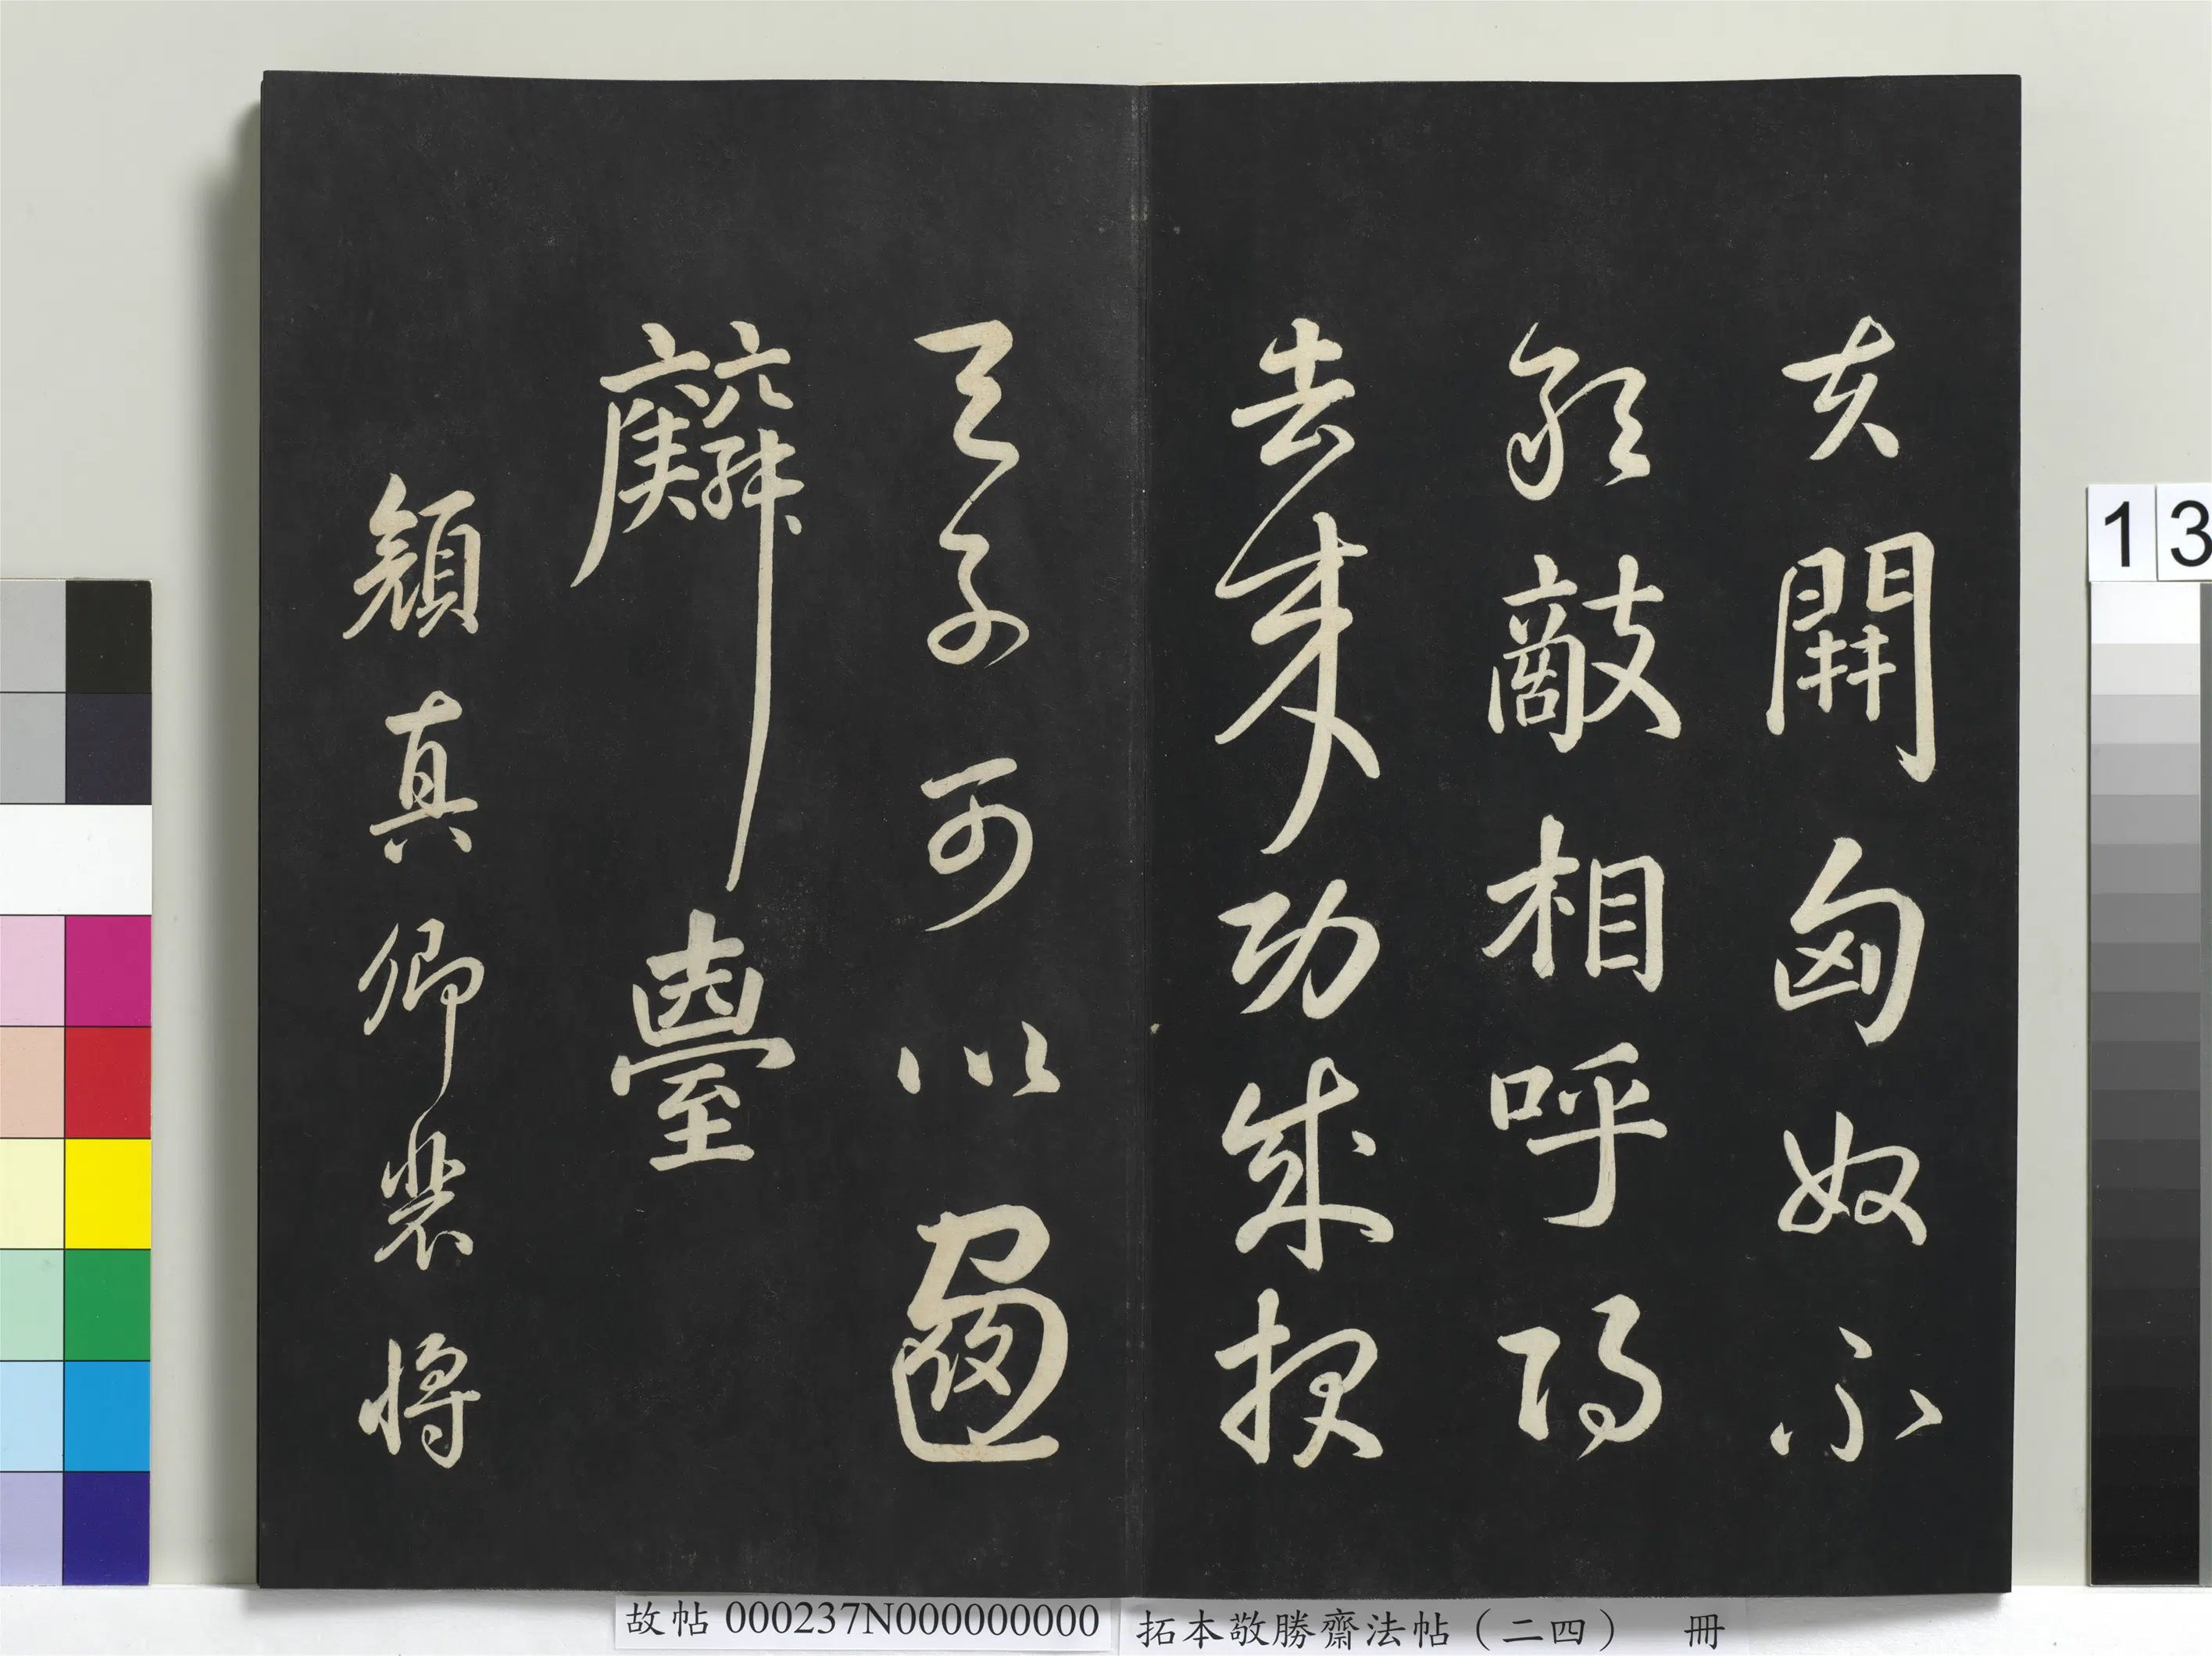 夫開匈奴不
敢敵相呼歸
去來功成報
天子可以畫
麟臺
顏真卿裴將
13
故帖000237N000000000
拓本敬勝齋法帖（二四） 冊